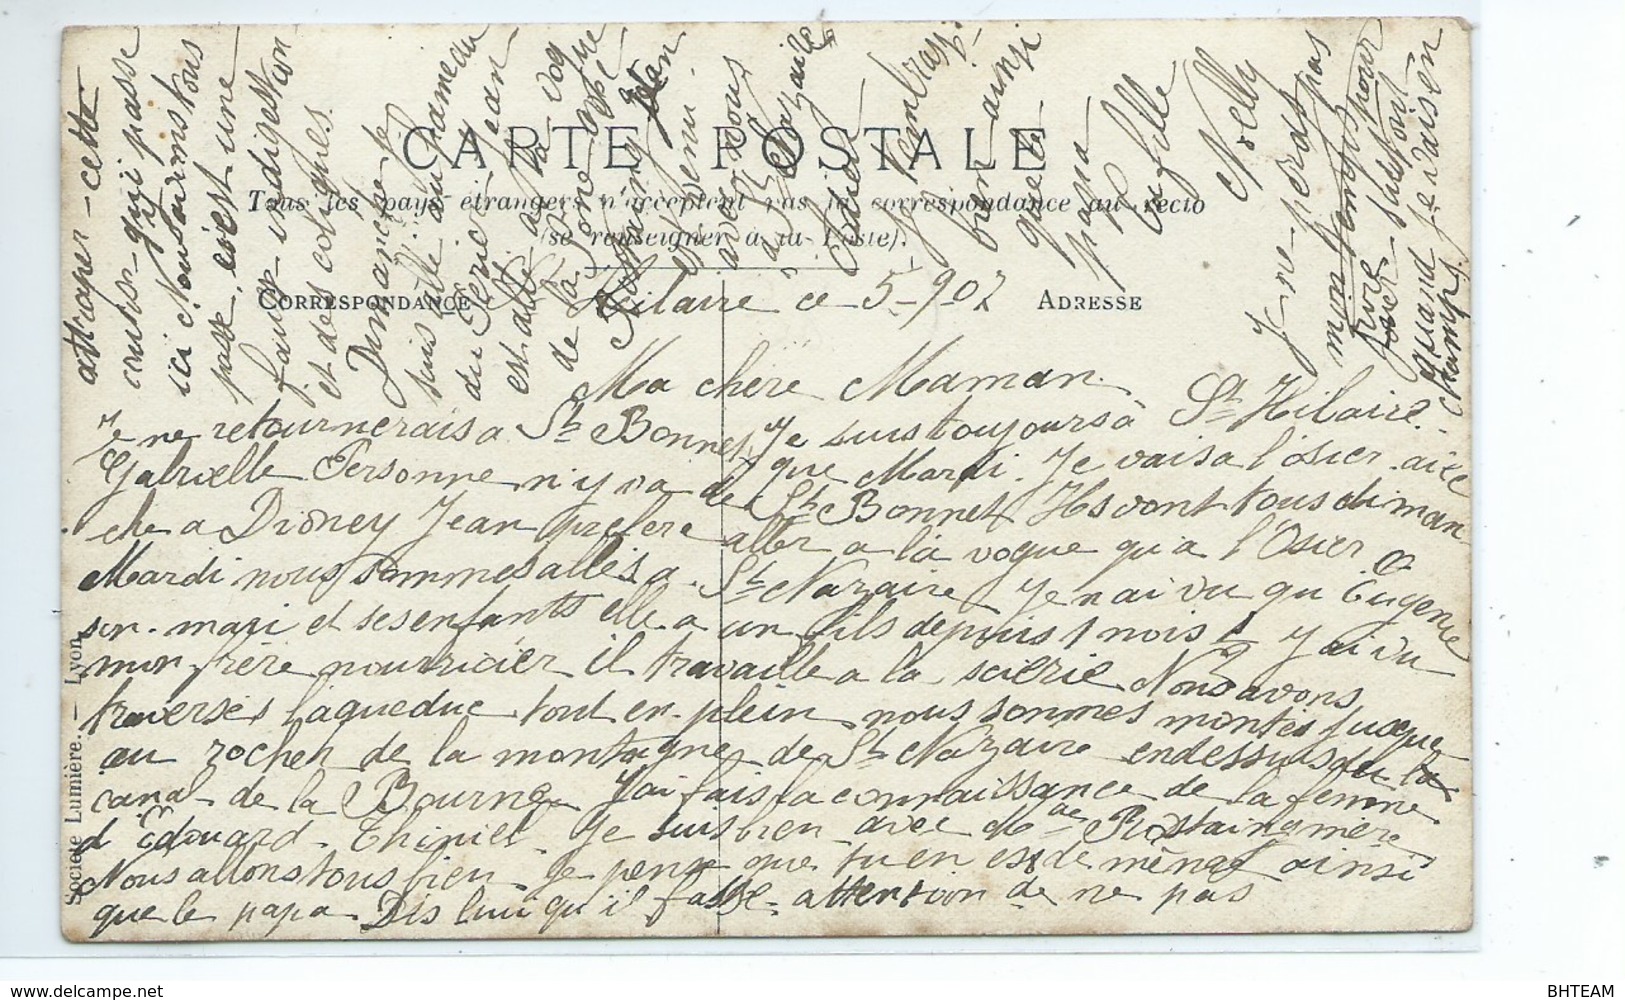 CARTE POSTALE
Tous les pays étrangers n'acceptent pas la correspondance au recto
(se renseigner à la Poste).
CORRESPONDANCE
ADRESSE
St Hilaire ce 5-902
Ma chère Maman.
Je suis toujours à St Hilaire.
Je ne retournerais a St Bonnet que Mardi. Je vais a l'Osier avec
Gabrielle Personne n'y va de St Bonnet Ils vont tous diman
che a Dioney Jean prefere aller a la vogue qu'a l'Osier
Mardi nous sommes allés a St Nazaire Je n'ai vu qu'Eugenie
son mari et ses enfants elle a un fils depuis 1 mois 1/2 J'ai vu
mon frère nourricier il travaille a la scierie Nous avons
traversés l'aqueduc tout en plein nous sommes montés jusque
au rocher de la montagne de St Nazaire en dessus du
canal de la Bourne J'ai fais la connaissance de la femme
d'Edouard Thiniel. Je suis bien avec Me Rostaing mère
Nous allons tous bien. Je pense que tu en es de même ainsi
que le papa. Dis lui qu'il fasse attention de ne pas
attraper cette
qui passe
ici Nous avons tous
passé, c'est une
indigestion
et des coliques.
Dimanche je
suis allé au hameau
du Jean
est allé a la vog
de la Sone
Rostaing
est venu
avec nous
a St Nazaire
Je t'embrasse
bien ainsi
que le
papa
Ta fille
Nelly
Je ne perds pas
mon temps pour
quand je vais en
champs.
Société Lumière. — Lyon
BHTEAM